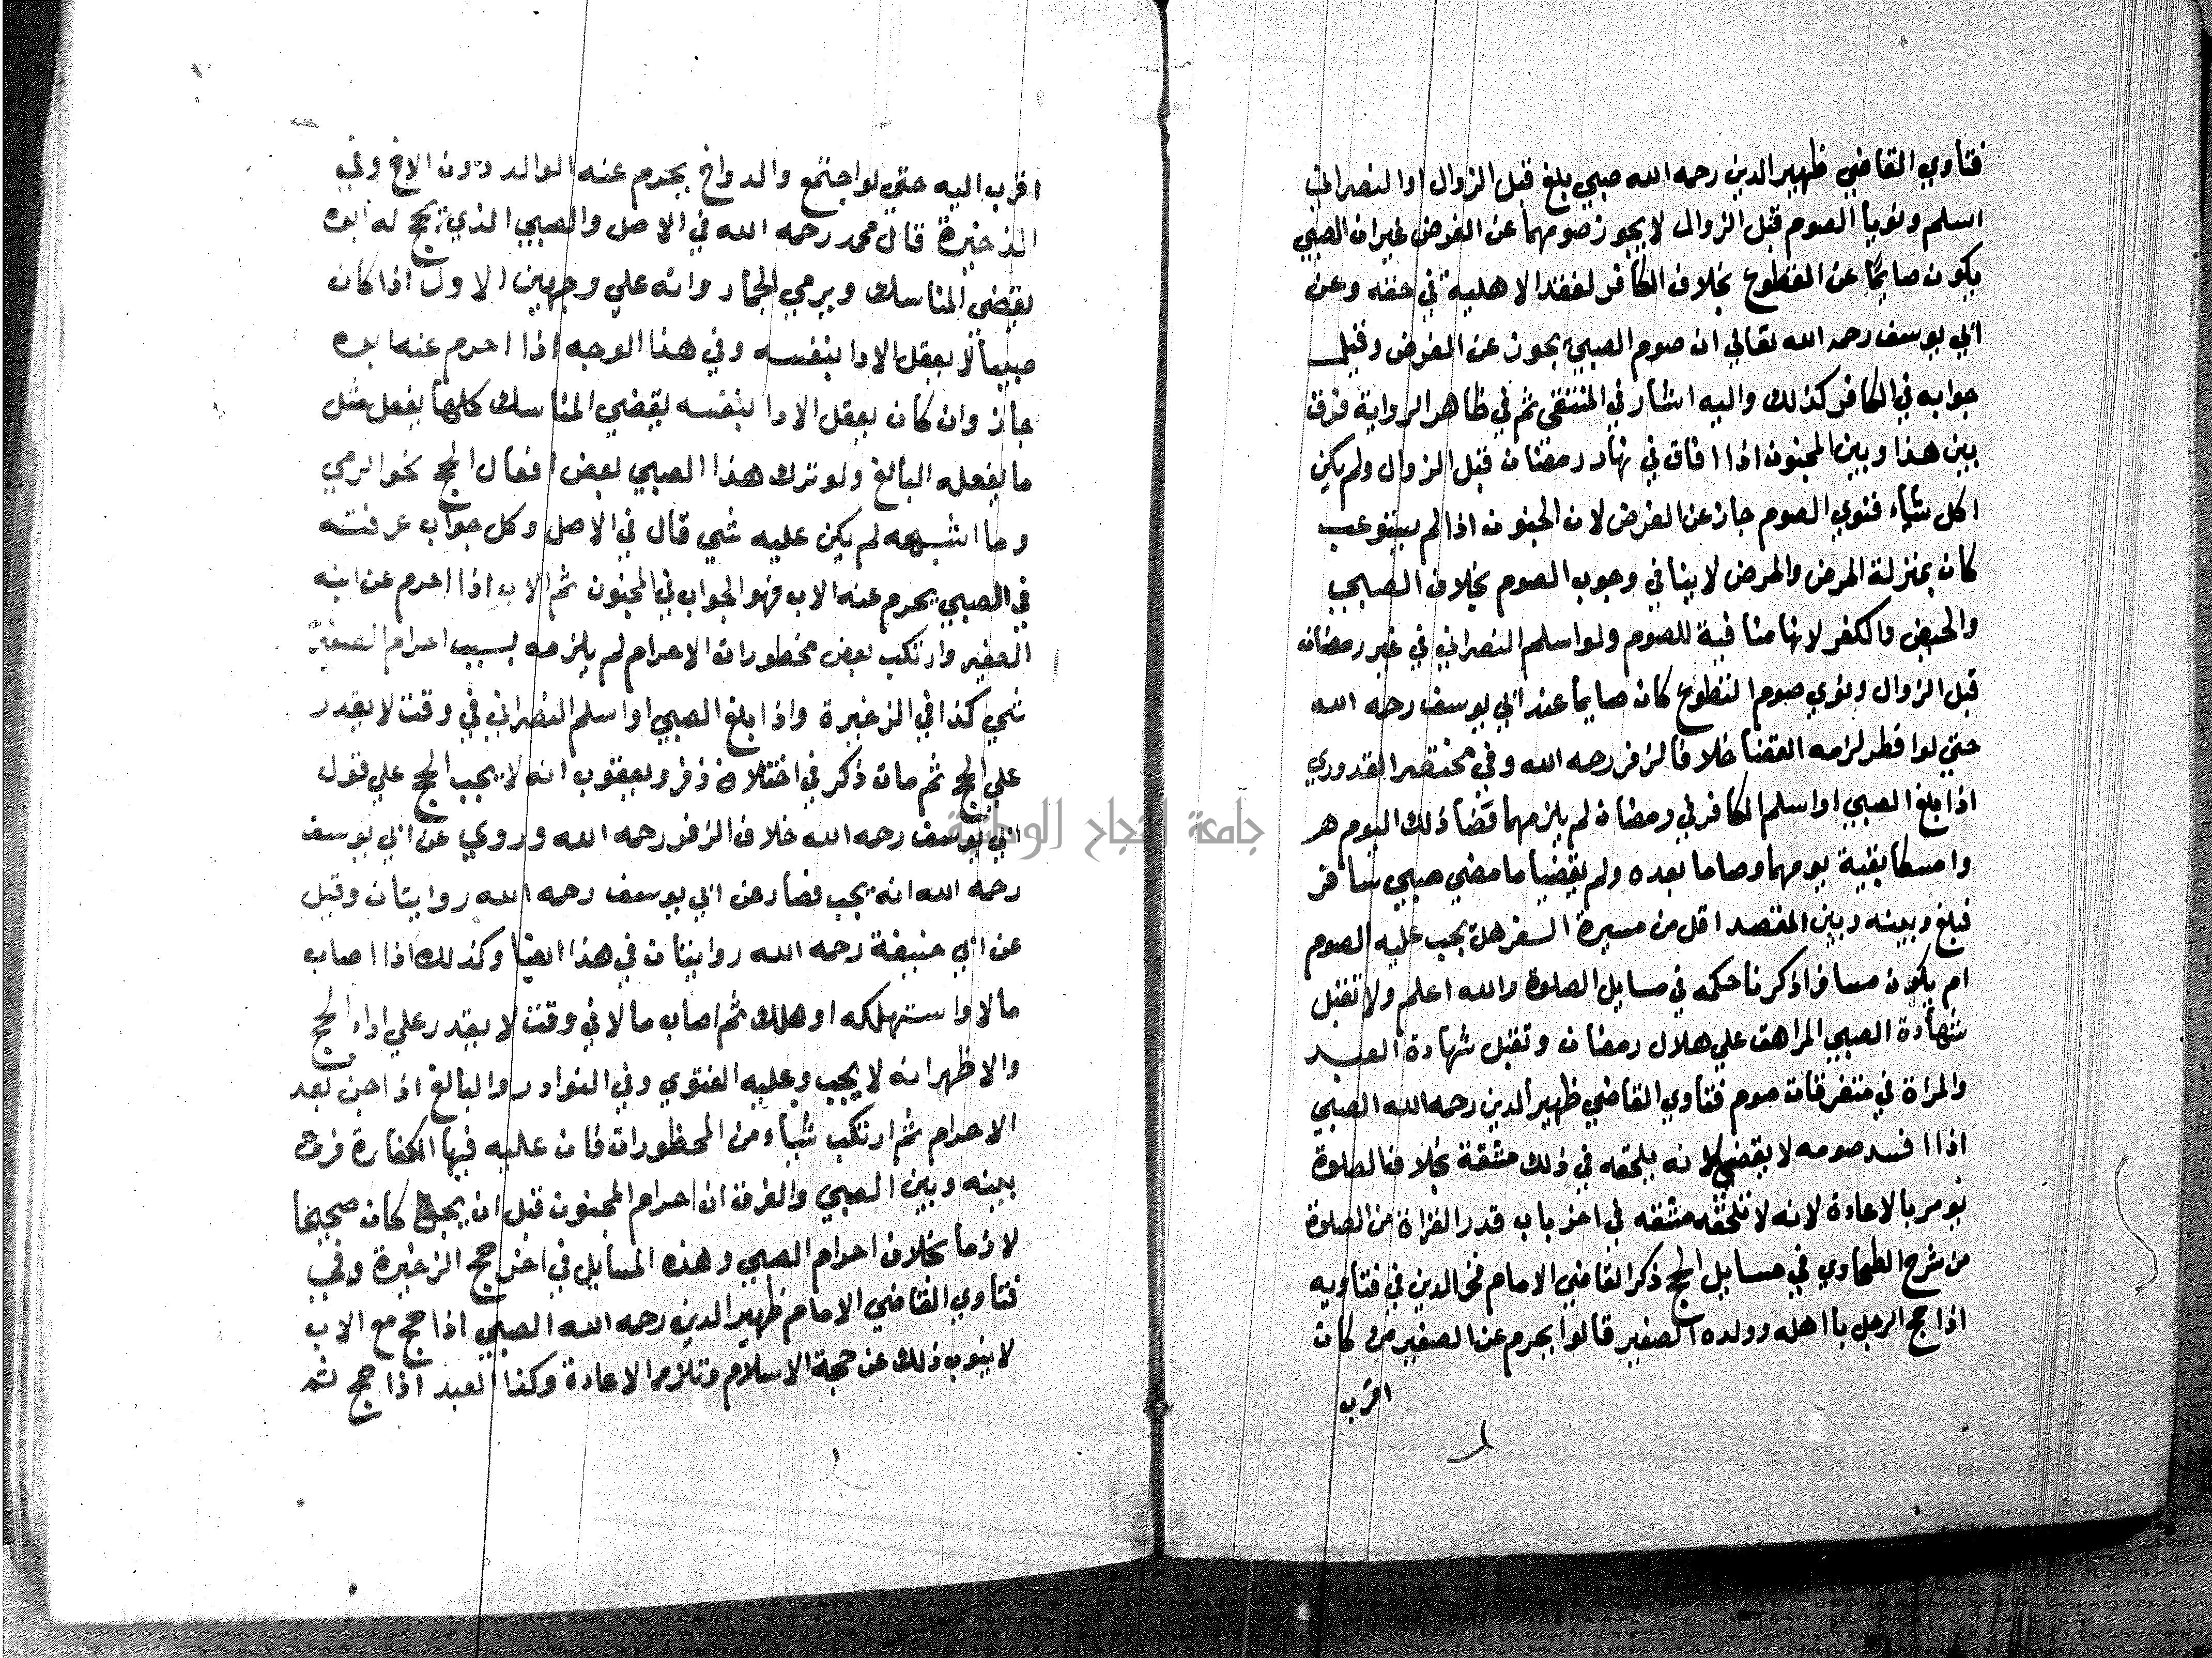 فتاوي القاضي ظهير الدين رحمه الله صبي بلغ قبل الزوال او النصراني
اسلم ونويا الصوم قبل الزوال لا يجوز صومهما عن الفرض غير ان الصبي
يكون صايما عن التطوع بخلاف الكافر لفقد الاهلية في حقه وعن
ابي يوسف رحمه الله تعالي ان صوم الصبي يجوز عن الفرض وقيل
جوابه في الكافر كذلك واليه اشار في المنتقى ثم في ظاهر الرواية فرق
بين هذا وبين المجنون اذا افاق في نهار رمضان قبل الزوال ولم يكن
اكل شياء فنوي الصوم جاز عن الفرض لان الجنون اذا لم يستوعب
كان بمنزلة المرض والمرض لا ينافي وجوب الصوم بخلاف الصبي
والحيض والكفر لانها منافية للصوم ولو اسلم النصراني في غير رمضان
قبل الزوال ونوي صوم التطوع كان صايما عند ابي يوسف رحمه الله
حتي لو افطر لزمه القضا خلافا لزفر رحمه الله وفي مختصر القدوري
اذا بلغ الصبي او اسلم الكافر في رمضان لم يلزمهما قضا ذلك اليوم
وامسكا بقية يومهما وصاما بعده ولم يقضيا ما مضي صبي سافر
فبلغ وبينه وبين المقصد اقل من مسيرة السفر هل يجب عليه الصوم
ام يكون مسافرا ذكرنا حكمه في مسايل الصلوة والله اعلم ولا تقبل
شهادة الصبي المراهق علي هلال رمضان وتقبل شهادة العبد
والمراة في متفرقات صوم فتاوي القاضي ظهير الدين رحمه الله الصبي
اذا افسد صومه لا يقضي لانه يلحقه في ذلك مشقة بخلاف الصلوة
يومر بالاعادة لانه لا تلحقه مشقه في اخر باب قدر القراة من الصلوة
من شرح الطحاوي في مسايل الحج ذكر القاضي الامام فخر الدين في فتاويه
اذا حج الرجل باهله وولده الصغير قالوا يحرم عن الصغير من كان
اقرب
اقرب اليه حتي لو اجتمع والد واخ يحرم عنه الوالد دون الاخ وفي
الذخيرة قال محمد رحمه الله في الاصل والصبي الذي يحج له ابوه
يقضي المناسك ويرمي الجمار وانه علي وجهين الاول اذا كان
صبيا لا يعقل الادا بنفسه وفي هذا الوجه اذا احرم عنه ابوه
جاز وان كان يعقل الادا بنفسه يقضي المناسك كلها يفعل مثل
ما يفعله البالغ ولو ترك هذا الصبي بعض افعال الحج نحو الرمي
وما اشبهه لم يكن عليه شي قال في الاصل وكل جواب عرفته
في الصبي يحرم عنه الاب فهو الجواب في المجنون ثم الاب اذا احرم عن ابنه
الصغير وارتكب بعض محظورات الاحرام لم يلزمه بسبب احرام الصغير
شي كذا في الزخيرة واذا بلغ الصبي او اسلم النصراني في وقت لا يقدر
علي الحج ثم مات ذكر في اختلاف زفر ويعقوب انه لا يجب الحج علي قول
ابي يوسف رحمه الله خلاف الزفر رحمه الله وروي عن ابي يوسف
رحمه الله انه يجب فصار عن ابي يوسف رحمه الله روايتان وقيل
عن ابي حنيفة رحمه الله روايتان في هذا ايضا وكذلك اذا اصاب
مالا واستهلكه او هلك ثم اصاب مالا في وقت لا يقدر علي اداء الحج
والاظهر انه لا يجب وعليه الفتوي وفي النوادر والبالغ اذا جن بعد
الاحرام ثم ارتكب شياء من المحظورات فان عليه فيها الكفارة فرق
بينه وبين الصبي والفرق ان احرام المجنون قبل ان يجن كان صحيحا
لازما بخلاف احرام الصبي وهذه المسايل في اخر حج الزخيرة وفي
فتاوي القاضي الامام ظهير الدين رحمه الله الصبي اذا حج مع الاب
لا ينوب ذلك عن حجة الاسلام وتلزم الاعادة وكذا العبد اذا حج ثم
جامعة النجاح الوطنية